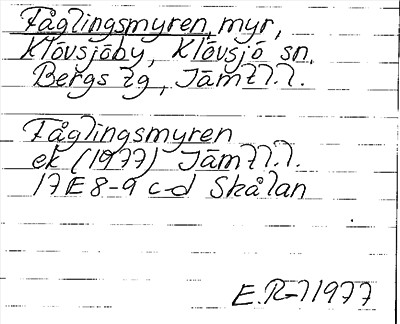 Fåglingsmyren, myr,
Klövsjöby, Klövsjö sn.
Bergs tg, Jämtl.l.
Fåglingsmyren
ek (1977) Jämtl.l.
17E 8-9 c-d Skålan
E.R-l 1977